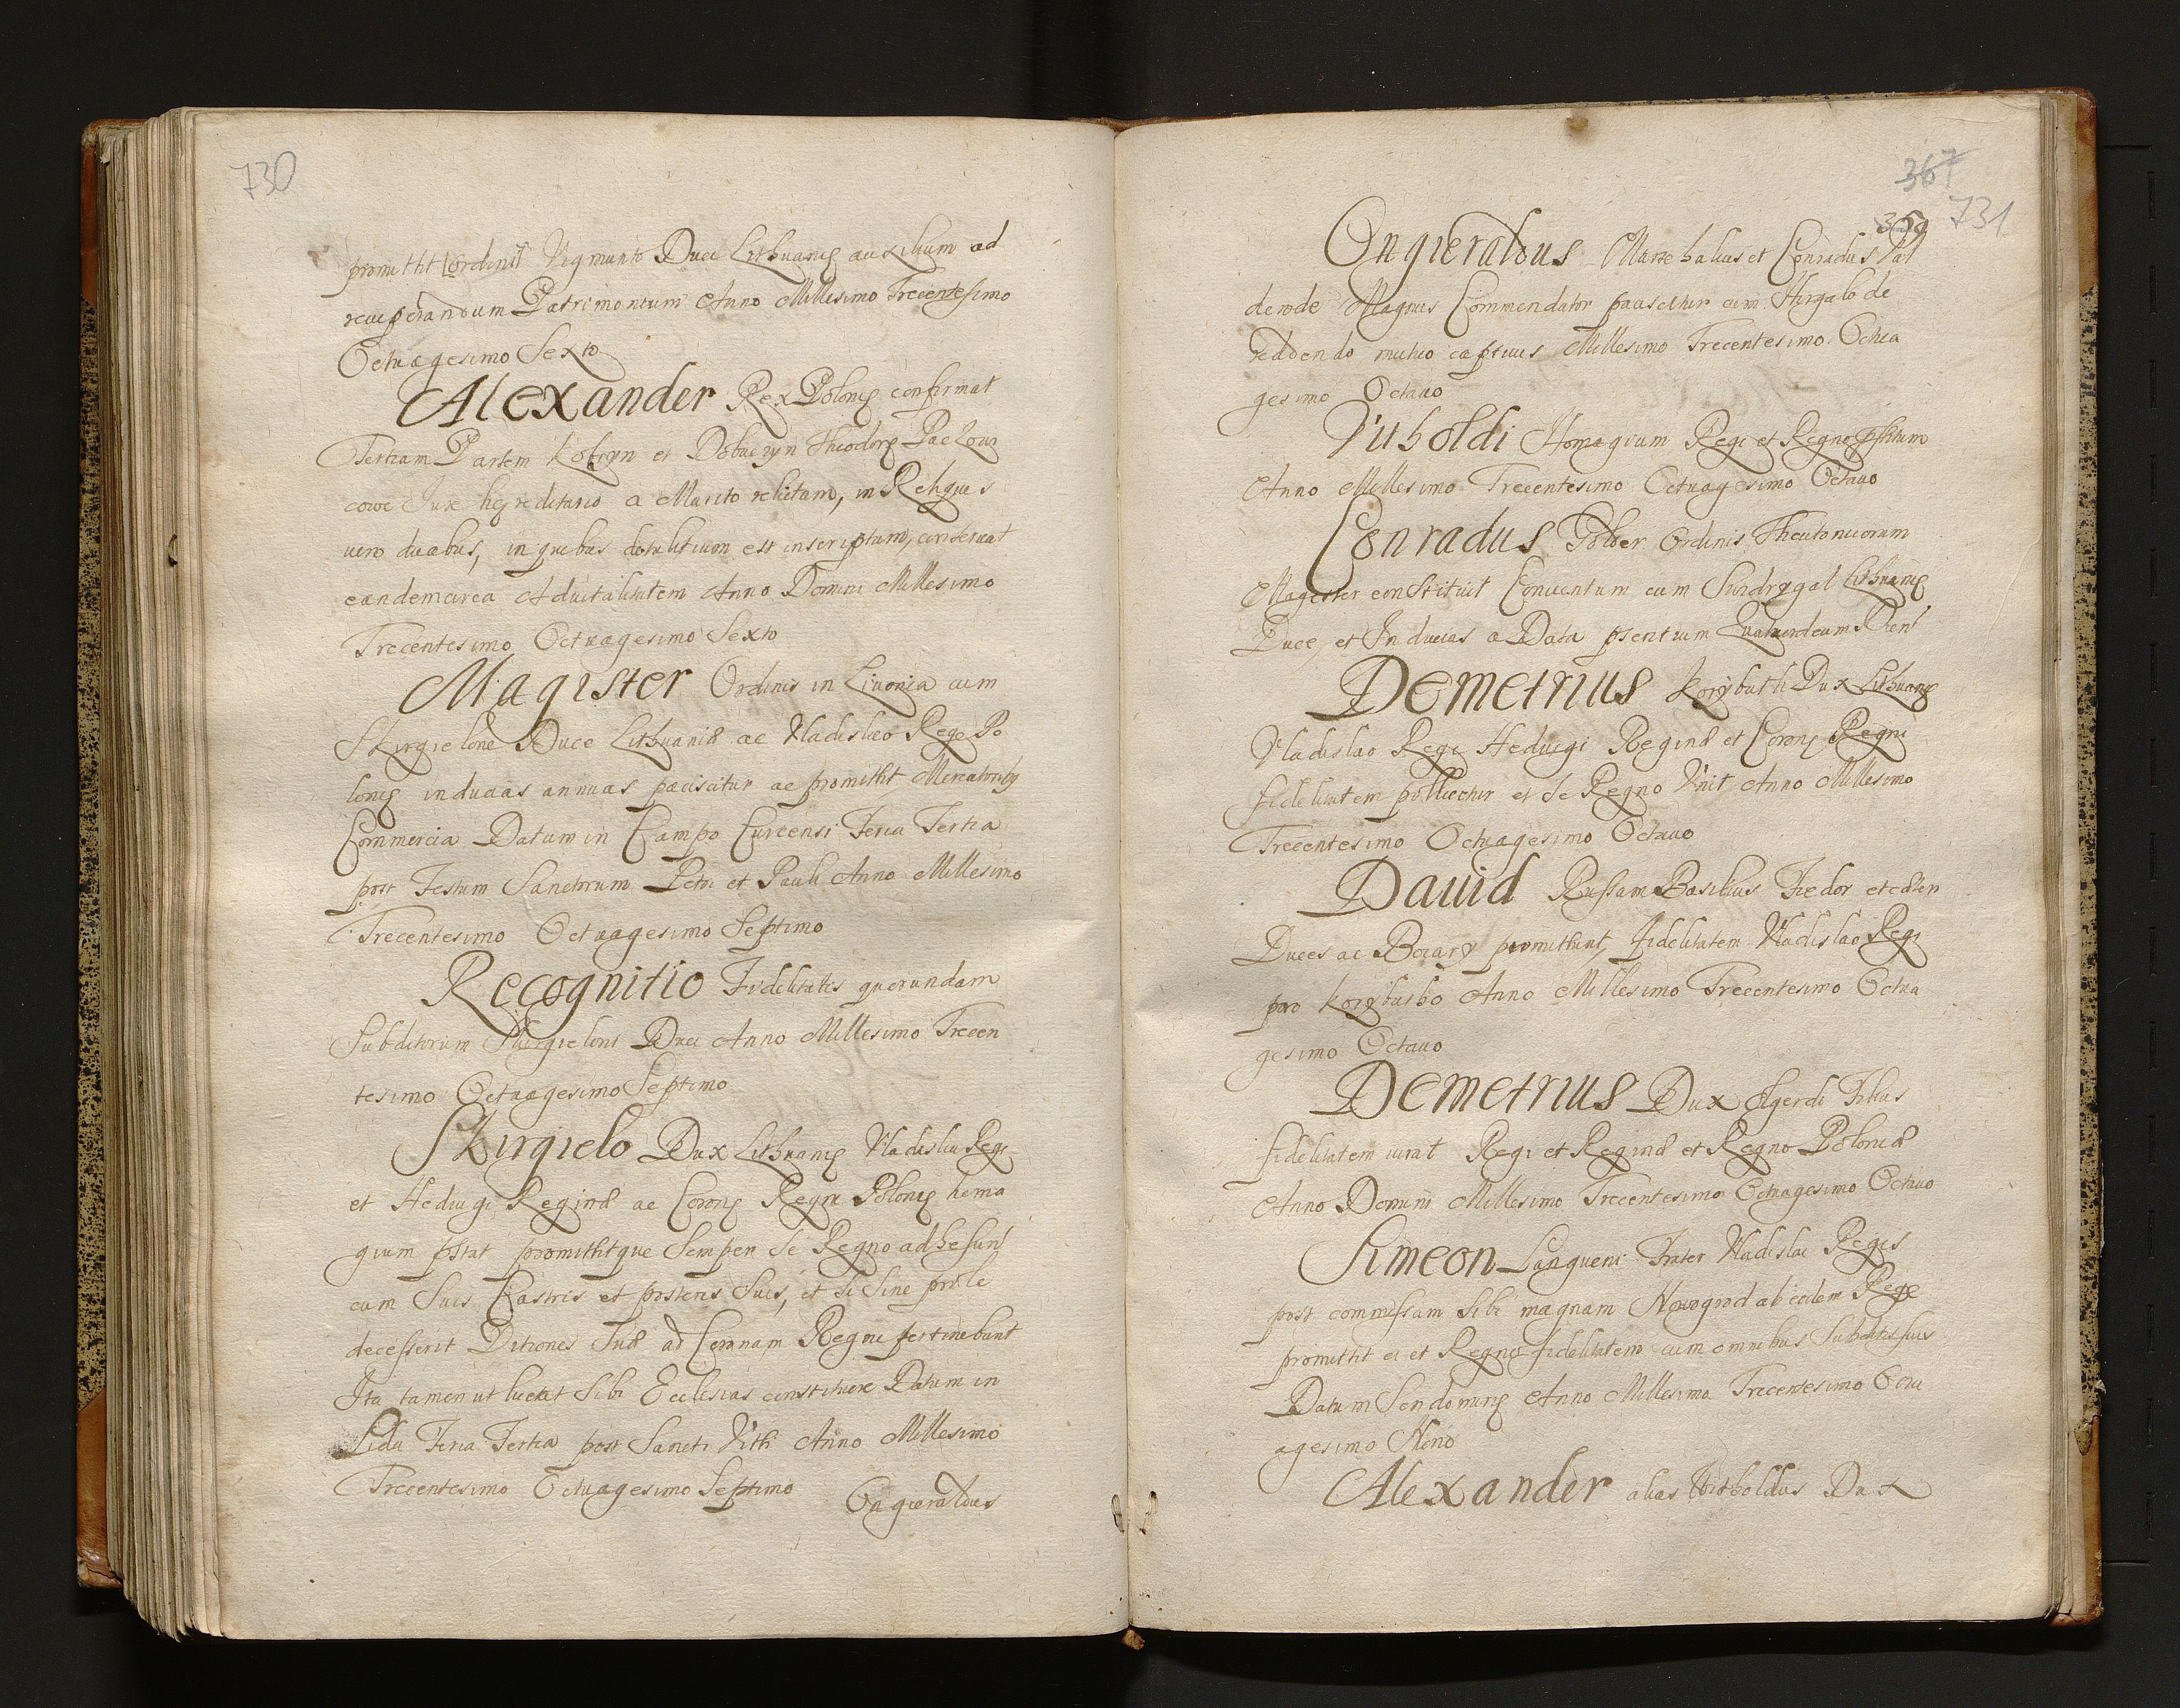 730
promittit Ordinis Vigmunto Duci Lithuanię auxilium ad
recuperandum Patrimonium Anno Millesimo Trecentesimo
Octuagesimo Sexto
Alexander Rex Polonię confirmat
Tertiam Partem Kobryn et Dobuczyn Theodorę Paczow
cowe Jure hęreditario a Marito relictam, in Reliquis
uero duabus, in quibus dotalitium est inscriptum, conseruat
eandem circa Aduitalitatem Anno Domini Millesimo
Trecentesimo Octuagesimo Sexto
Magister Ordinis in Liuonia cum
Skirgielone Duce Lithuaniæ ac Vladislao Rege Po
lonię inducias annuas paciscitur ac promittit Mercatoribq
Commercia Datum in Campo Curcensi Feria Tertia
post Festum Sanctorum Petri et Pauli Anno Millesimo
Trecentesimo Octuagesimo Septimo
Recognitio Fidelitatis quorundam
Subditorum Skirgieloni Duci Anno Millesimo Trecen
tesimo Octuagesimo Septimo
Skirgielo Dux Lithuanię Vladislao Regi
et Hedwigi Reginæ ac Coronę Regni Polonię homa
gium pstat promittitque Semper Se Regno adhesurū
cum Suis Castris et posteris Suis, et si Sine prole
decesserit Ditiones Suæ ad Coronam Regni pertinebunt
Ita tamen ut liceat Sibi Ecclesias constituere Datum in
Lida Feria Tertia post Sancti Viti Anno Millesimo
Trecentesimo Octuagesimo Septimo
Ongieraldus
367
359 731
Ongieraldus Marschalcus et Conradus Val
derode Magnus Commendator paciscitur cum Skirgalo de
reddendo mutuo captiuis Millesimo Trecentesimo Octua
gesimo Octauo
Vitholdi Homagium Regi et Regno pstitum
Anno Millesimo Trecentesimo Octuagesimo Octauo
Conradus Zolner Ordinis Theutonicorum
Magister constituit Conuentum cum Skirdrygal Lithuanię
Duce, et Inducias a Data psentium Quatuordecim Dierū
Demetrius Korybuth Dux Lithuanię
Vladislao Regi Heduigi Reginæ et Coronę Regni
fidelitatem pollicetur et se Regno Vnit Anno Millesimo
Trecentesimo Octuagesimo Octauo
Dauid Russam Basilius Fiedor et alter
Duces ac Boiary promittunt, fidelitatem Vladislao Regi
pro Korybutho Anno Millesimo Trecentesimo Octua
gesimo Octauo
Demetrius Dux Olgerdi Filius
fidelitatem iurat Regi et Reginæ et Regno Poloniæ
Anno Domini Millesimo Trecentesimo Octuagesimo Octauo
Simeon Langueni Frater Vladislai Regis
post commissam Sibi magnam Nowogrod ab eodem Rege
promittit ei et Regno fidelitatem cum omnibus Subditis suis
Datum Sendomirię Anno Millesimo Trecentesimo Octu
agesimo Nono
Alexander alias Vitholdus Dux